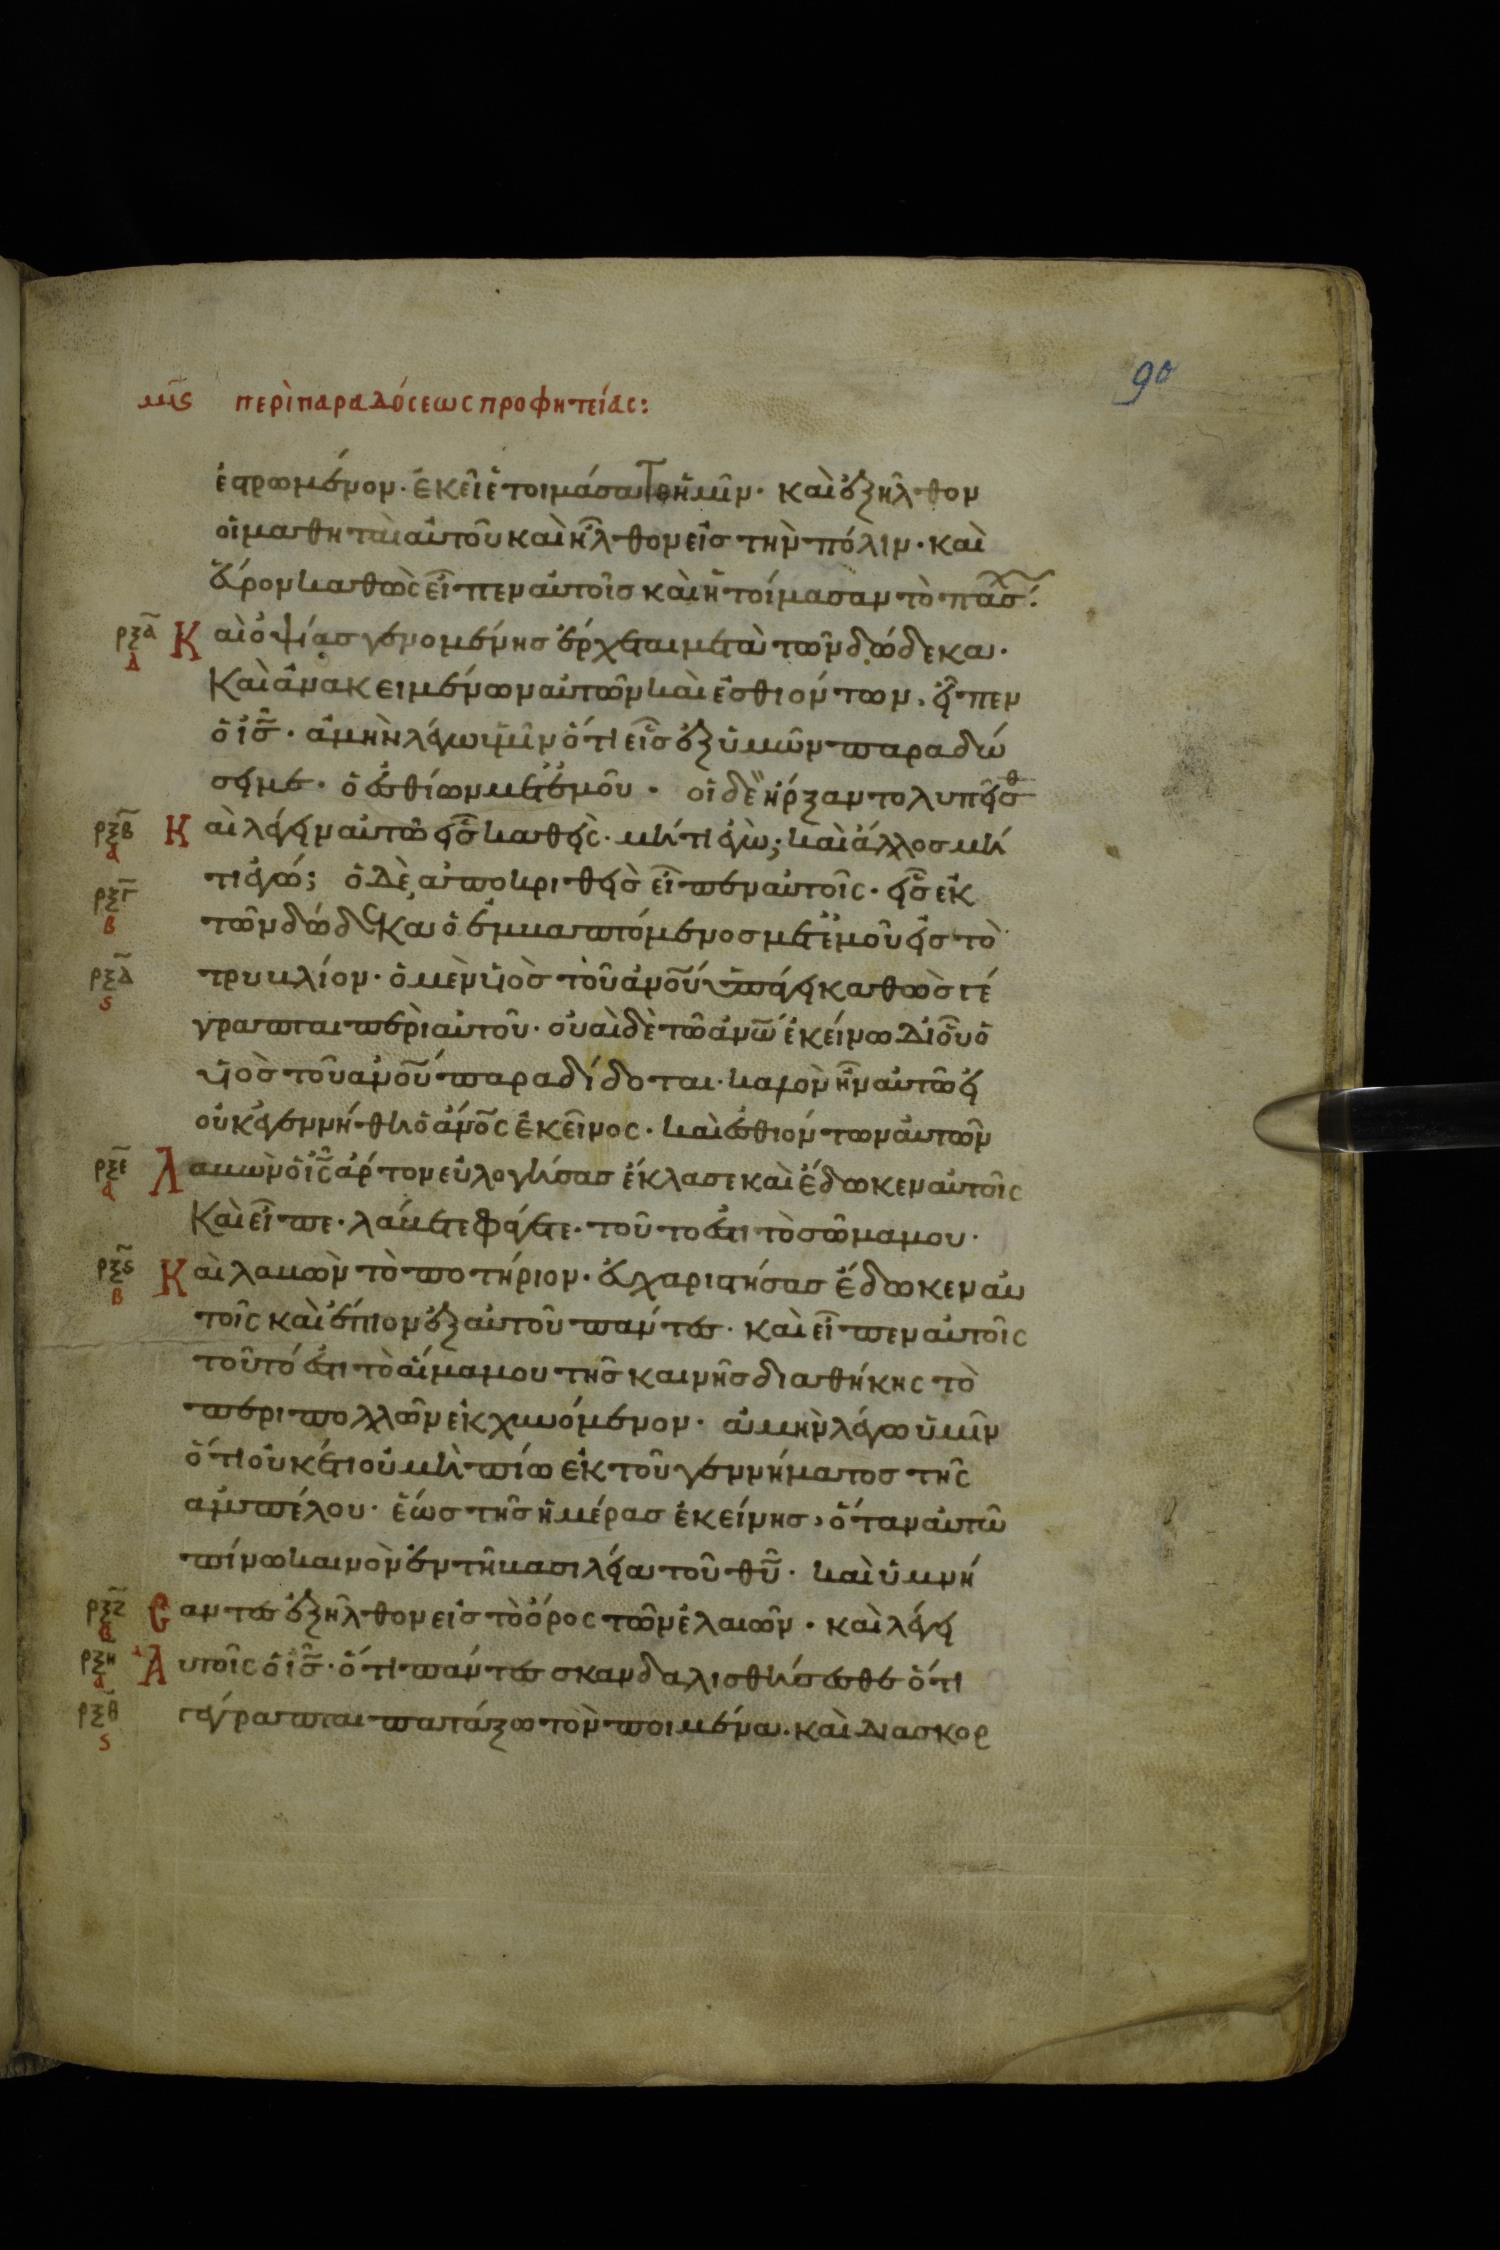 90
μϛ περὶ παραδόσεως προφητείας:
ἐστρωμένον· ἐκεῖ ἑτοιμάσατε ἡμῖν· καὶ ἐξῆλθον
οἱ μαθηταὶ αὐτοῦ καὶ ἦλθον εἰς τὴν πόλιν· καὶ
εὗρον καθὼς εἶπεν αὐτοῖς καὶ ἡτοίμασαν τὸ πάσ̅·
ρξα δ Καὶ ὀψίας γενομένης ἔρχεται μετὰ τῶν δώδεκα·
Καὶ ἀνακειμένων αὐτῶν καὶ ἐσθιόντων· εἶπεν
ὁ ἰς̅· ἀμὴν λέγω ὑμῖν ὅτι εἷς ἐξ ὑμῶν παραδώ
σει με· ὁ ἐσθίων μετ' ἐμοῦ· οἱ δὲ ἤρξαντο λυπεῖσθ
ρξβ α Καὶ λέγειν αὐτῶ εἷς καθεὶς· μή τι ἐγώ; καὶ ἄλλος μή
ρξγ β τι ἐγώ; ὁ δὲ ἀποκριθεὶς εἶπεν αὐτοῖς· εἷς ἐκ
τῶν δώδεκα ὁ ἐμβαπτόμενος μετ' ἐμοῦ εἰς τὸ
ρξδ ϛ τρυβλίον· ὁ μὲν υἱὸς τοῦ ἀνο̅υ̅ ὑπάγει καθὼς γέ
γραπται περὶ αὐτοῦ· οὐαὶ δὲ τῶ ἀνω̅ ἐκείνω δι' οὗ ὁ
υἱὸς τοῦ ἀνο̅υ̅ παραδίδοται· καλὸν ἦν αὐτῶ εἰ
οὐκ ἐγεννήθη ὁ ἀνο̅ς̅ ἐκεῖνος· καὶ ἐσθιόντων αὐτῶν
ρξε α Λαβὼν ὁ ἰς̅ ἄρτον εὐλογήσας ἔκλασε καὶ ἔδωκεν αὐτοῖς
Καὶ εἶπε· λάβετε φάγετε· τοῦτο ἐστι τὸ σῶμα μου·
ρξϛ β Καὶ λαβὼν τὸ ποτήριον· εὐχαριστήσας ἔδωκεν αὐ
τοῖς καὶ ἔπιον ἐξ αὐτοῦ πάντες· καὶ εἶπεν αὐτοῖς
τοῦτό ἐστι τὸ αἷμα μου τῆς καινῆς διαθήκης τὸ
περὶ πολλῶν ἐκχυνόμενον· ἀμὴν λέγω ὑμῖν
ὅτι οὐκέτι οὐ μὴ πίω ἐκ τοῦ γεννήματος τῆς
ἀμπέλου· ἕως τῆς ἡμέρας ἐκείνης, ὅταν αὐτῶ
πίνω καινὸν ἐν τῆ βασιλεία τοῦ θυ̅· καὶ ὑμνή
ρξζ α Σαντες ἐξῆλθον εἰς τὸ ὄρος τῶν ἐλαιῶν· καὶ λέγει
ρξη α Αὐτοῖς ὁ ἰς̅· ὅτι πάντες σκανδαλισθήσεσθε ὅτι
ρξθ ϛ γέγραπται πατάξω τὸν ποιμένα· καὶ διασκορ